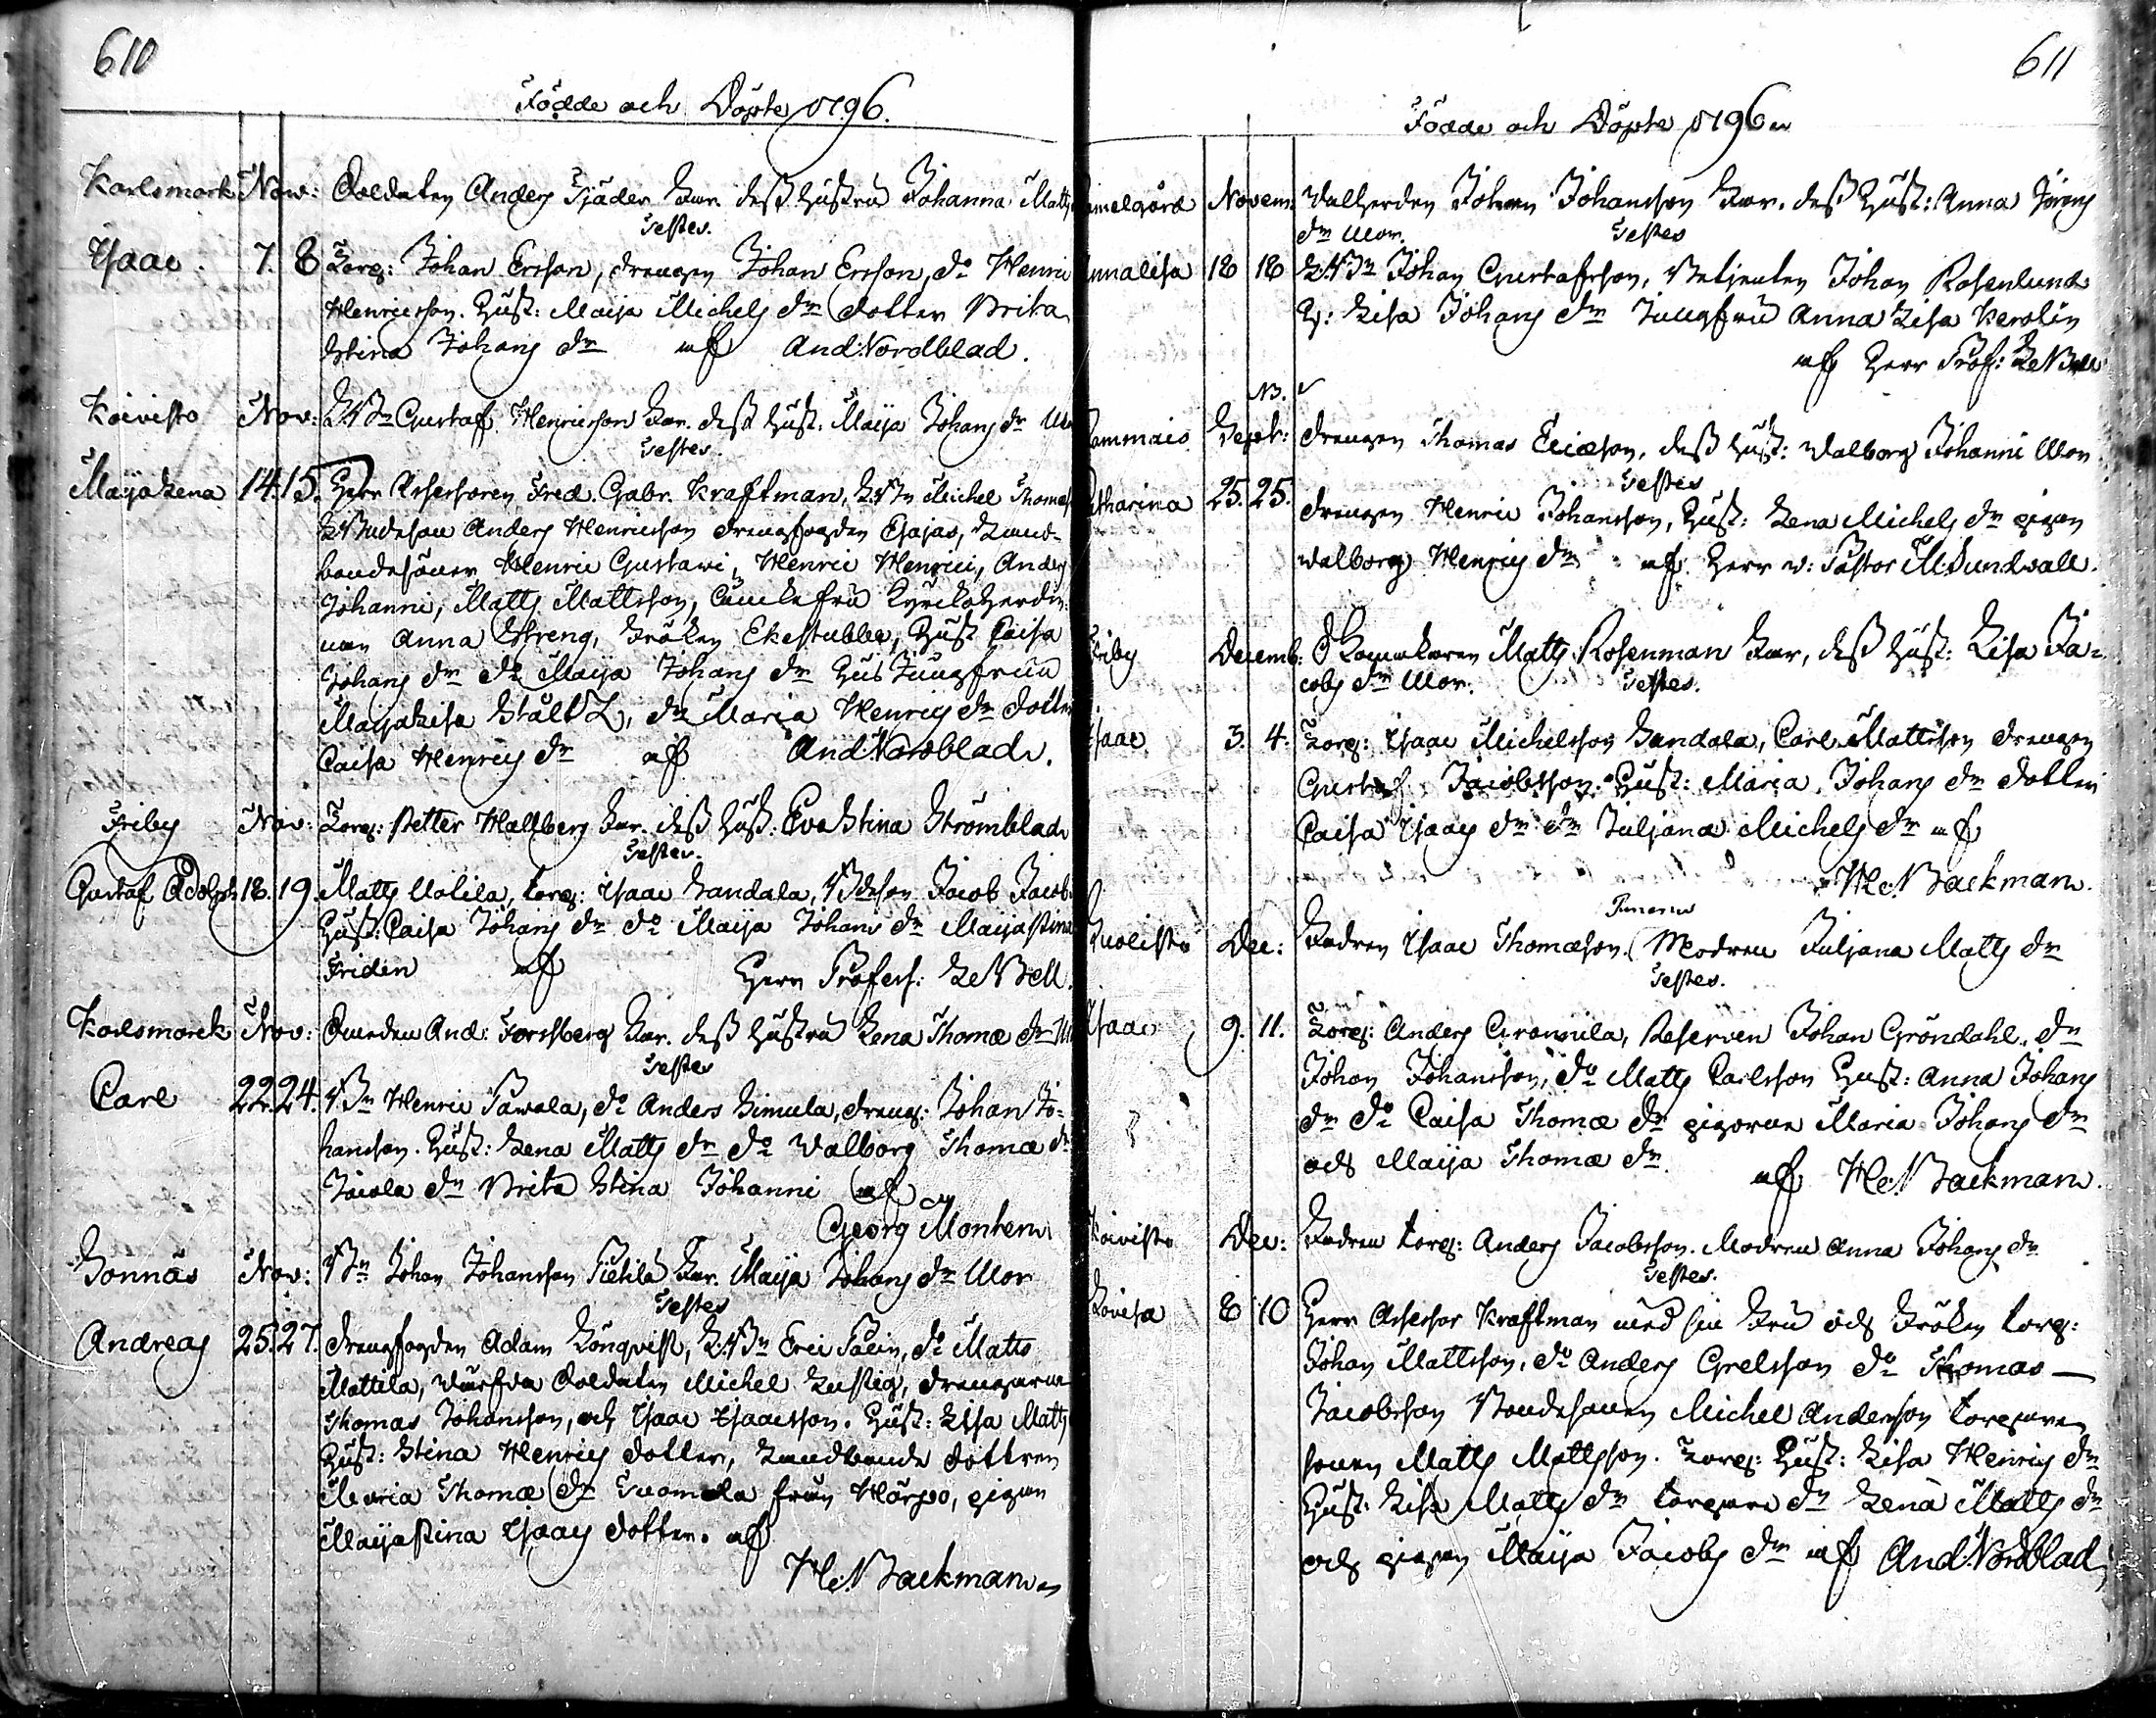 610
Födde och Döpte 1796.
Karlsmark Nov: Soldaten Anders Fjäder Far. dess Hustru Johanna Matts
Testes.
Isaac. 7. 8 Torp: Johan Ersson, drengen Johan Ersson, do Henric
Henricsson. Hust: Maija Michels dr dotter Brita
Stina Johans dr af And: Nordblad.
Koivisto Nov: Gustaf Henricsson Far. dess Hust. Maija Johans dr
Testes.
Maija Lena 14. 15. Herr Assessoren Fred. Gabr. Kraftman, Michel Thomass
Anders Henricsson drengfogden Esajas, Land-
bondesöner Henric Gustavi, Henric Henrici, Anders
Johanni, Matts Mattsson, Enkefru Kyrkoherdin-
nan Anna Streng, Fröken Ekestubbe, Hust Caisa
Johans dr do Maija Johans dr Hus Jungfrun
Maija Lisa Stålt, do Maria Henrics dr dotter
Caisa Henrics dr af And: Nordblad.
Friby Nov: Torp: Petter Hallberg Far. dess Hust: Eva Stina Strömblad
Testes.
Gustaf Adolph 18. 19. Matts Uolila, torp: Isaac Sandala, Jacob Jacobs
Hust: Caisa Johans dr do Maija Johans dr Maija Stina
Friden af Herr Profess: Le Bell.
Karlsmark Nov: And: Forssberg Far. dess Hustru Lena Thomæ dr
Testes
Carl 22 24. Bn Henric Pawala, do Anders Simula, dreng: Johan Jo-
hansson. Hust: Lena Matts dr do Walborg Thomæ dr
Jacola dr Brita Stina Johanni af
Georg Monten
Sonnäs Nov: Bn Johan Johansson Pietilä Far. Maija Johans dr Mor
Testes
Andreas 25. 27. drengfogden Adam Lönqvist, Eric Pavin, do Matts
Mattila, Soldaten Michel Lustig, drengarne
Thomas Johansson, och Isaac Isaacsson. Hust: Lisa Matts
Hust: Stina Henrics dotter, Landbonde dottren
Maria Thomæ dr Tuomola från Härpö, pigan
Maija Stina Isaacs dotter. af
H: Backman
611
Födde och Döpte 1796
Novem: Vallherden Johan Johansson Far. dess Hust: Anna Jörens
dr Mor. Testes
Annalisa 18 18 Johan Gustafsson, Betjenten Johan Rosenlund
H: Lisa Johans dr Jungfru Anna Lisa Kerolin
af Herr Prof: Le Bell
NB.
Sept: drengen Thomas Ericsson, dess Hust: Walborg Johanni Mor
Testes
Catharina 25. 25. drengen Henric Johansson, Hust: Lena Michels dr pigan
Walborg Henrics dr af Herr v: Pastor M: Sundvall.
Friby Decemb: Skomakaren Matts Rosenman Far, dess Hust: Lisa Ja-
cobs dr Mor. Testes.
Isaac 3. 4. Torp: Isaac Michelsson Sandala, Carl Mattsson drengen
Gustaf Jacobsson. Hust: Maria Johans dr dottren
Caisa Isaacs dr do Juljana Michels dr af
H: Backman.
Kuolisto Dec: Fadren Isaac Thomæson. Modren Juljana Matts dr
Testes.
Isaac 9. 11. Torp: Anders Grannila, Reserven Johan Gröndahl. do
Johan Johansson, do Matts Carlsson Hust: Anna Johans
dr do Caisa Thomæ dr pigorna Maria Johans dr
och Maija Thomæ dr. af H: Backman.
Koivisto Dec: Fadren torp: Anders Jacobsson. Modren Anna Johans dr
Testes.
Lovisa 8 10 Herr Assessor Kraftman med sin Fru och Fröken torp:
Johan Mattsson, do Anders Grelsson do Thomas —
Jacobsson Bondesonen Michel Andersson torpare
sonen Matts Mattsson. Torp: Hust: Lisa Henrics dr
Hust: Lisa Matts dr torpare dr Lena Matts dr
och pigan Maija Jacobs dr af And: Nordblad